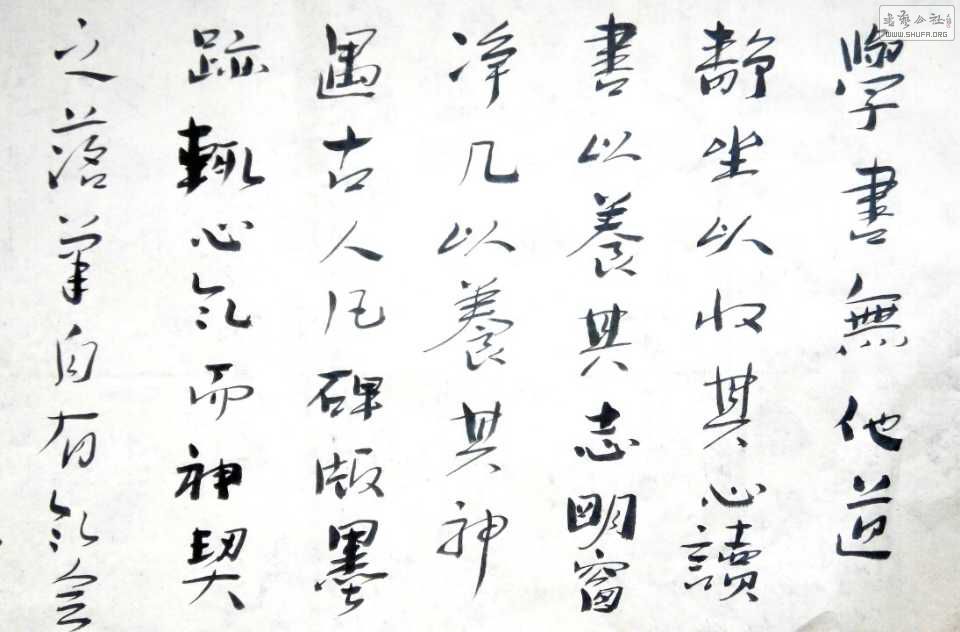 學書無他道
靜坐以收其心讀
書以養其志明窗
净几以養其神
遇古人居碑版墨
跡輒心氣而神契
之落筆自有氣会
书艺公社
WWW.SHUFA.ORG